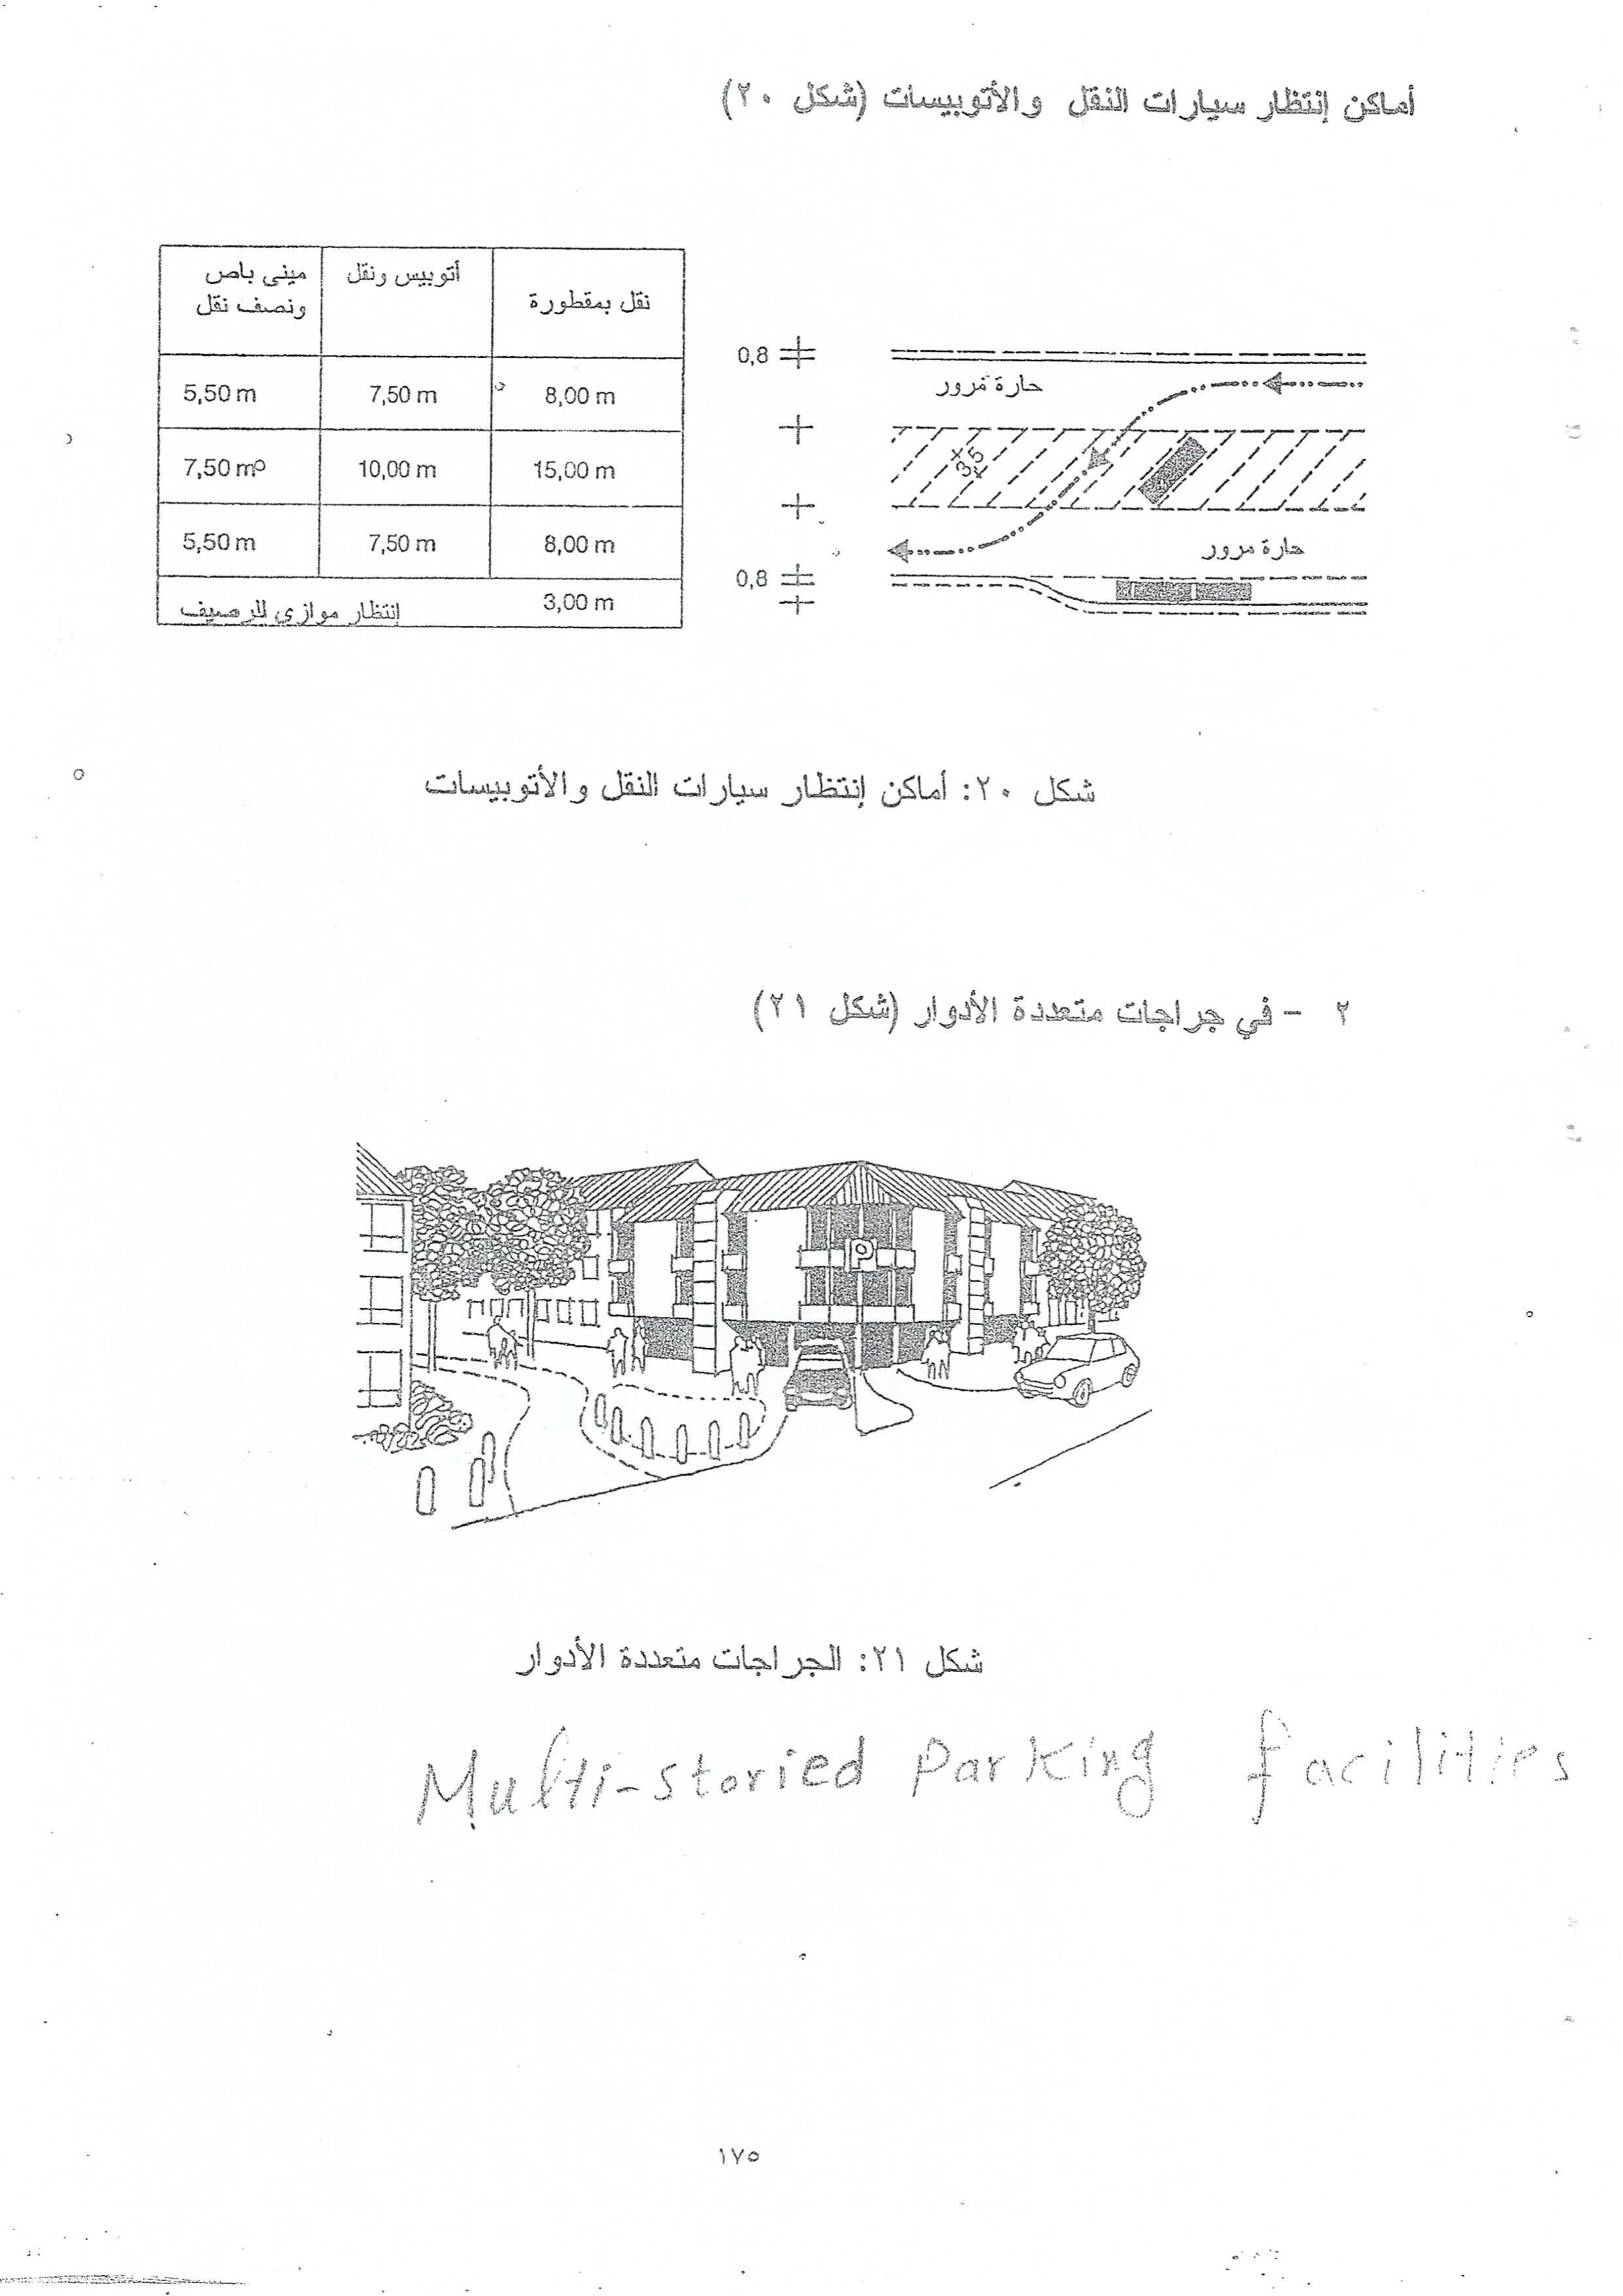 أماكن إنتظار سيارات النقل والأتوبيسات (شكل ٢٠)
نقل بمقطورة	أتوبيس ونقل	ميني باص ونصف نقل
8,00 m	7,50 m	5,50 m
15,00 m	10,00 m	7,50 m
8,00 m	7,50 m	5,50 m
3,00 m	إنتظار موازي للرصيف
0,8
حارة مرور
حارة مرور
0,8
شكل ٢٠: أماكن إنتظار سيارات النقل والأتوبيسات
٢ - في جراجات متعددة الأدوار (شكل ٢١)
P
شكل ٢١: الجراجات متعددة الأدوار
Multi-storied parking facilities
١٧٥